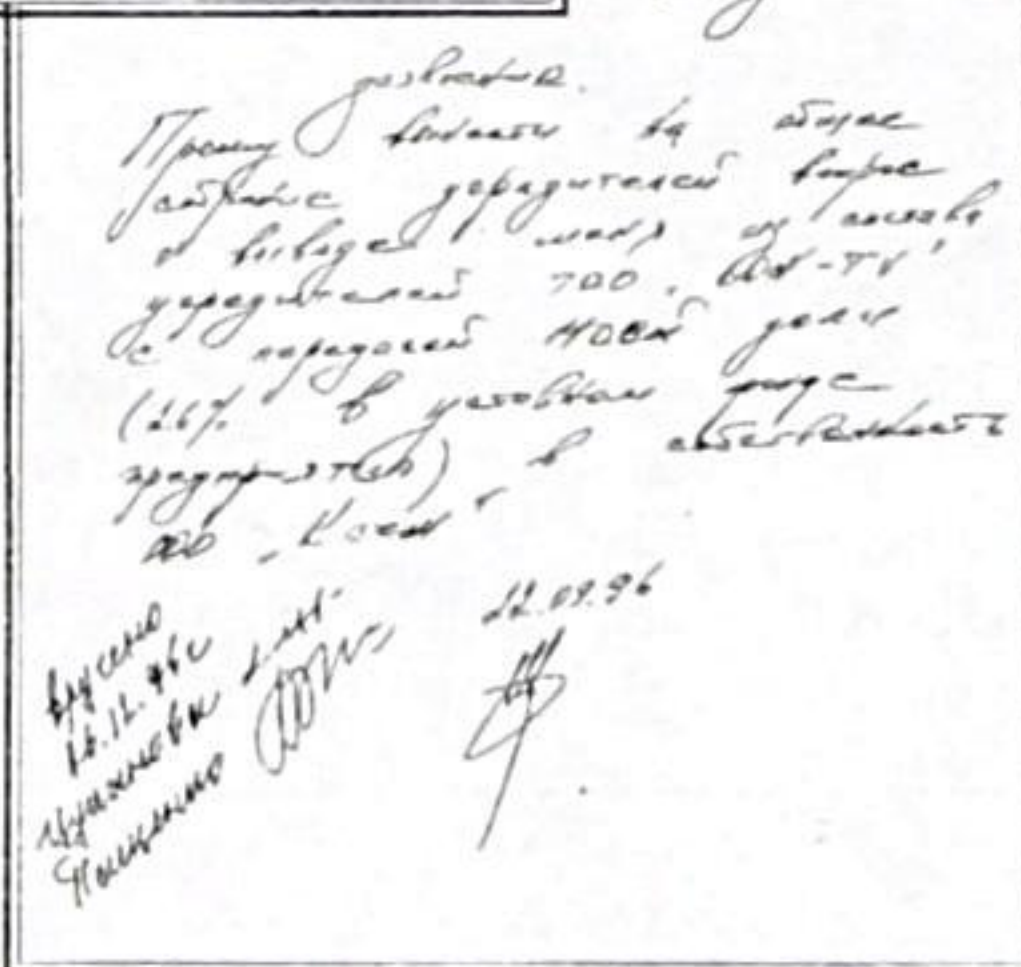 заявление.
Прошу вынести на общее
собрание учредителей вопрос
о выводе меня из состава
учредителей ТОО
с передачей моей доли
(26% в уставном фонде
предприятия) в собственность
ООО
22.09.96
вручено
16.12.96